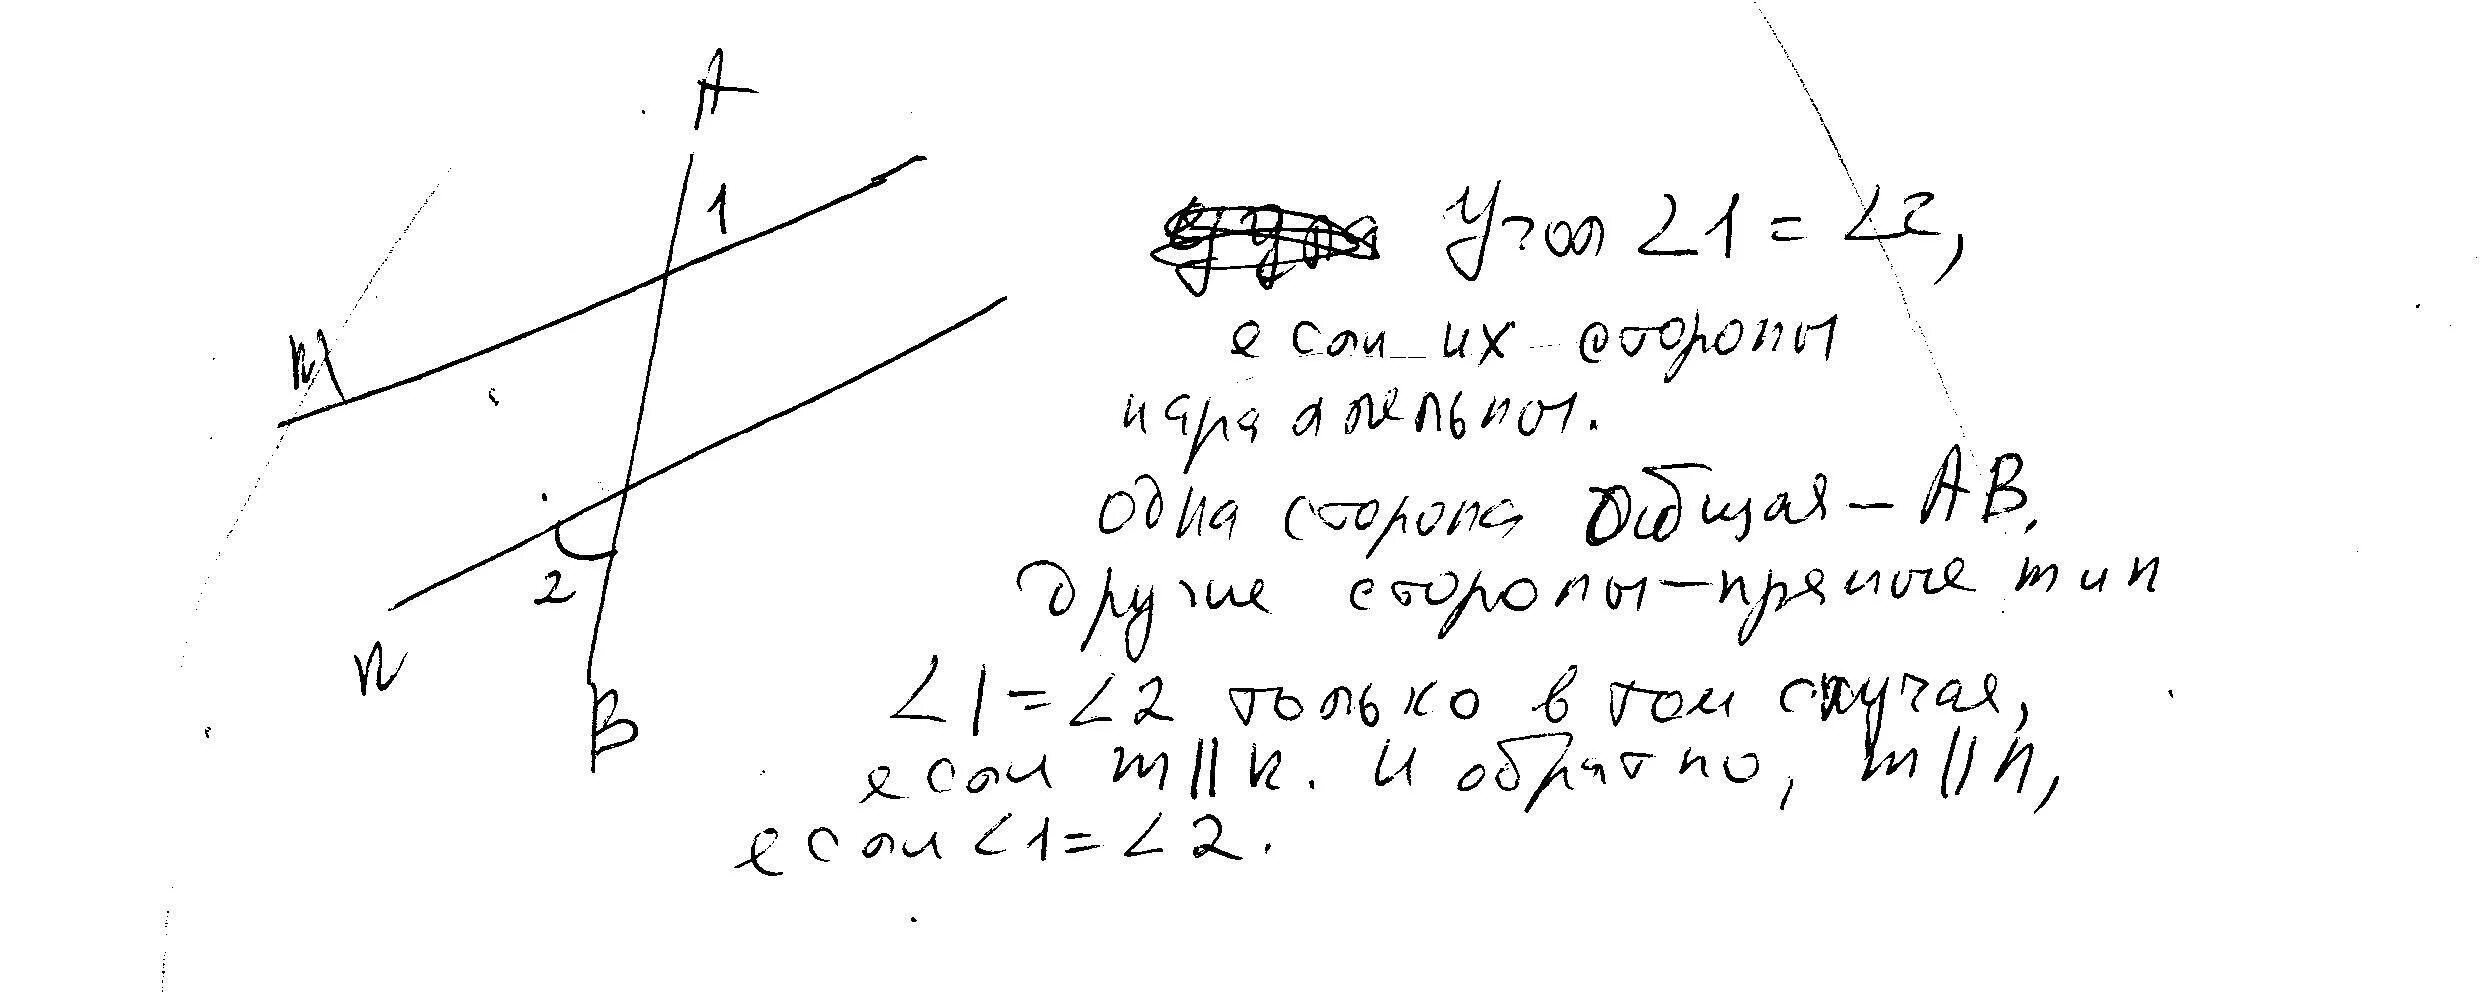 A
1
m
2
n
B
Угол ∠1 = ∠2,
если их стороны
параллельны.
Одна сторона общая – AB.
другие стороны – прямые m и n
∠1 = ∠2 только в том случая,
если m || n. И обратно, m || n,
если ∠1 = ∠2.